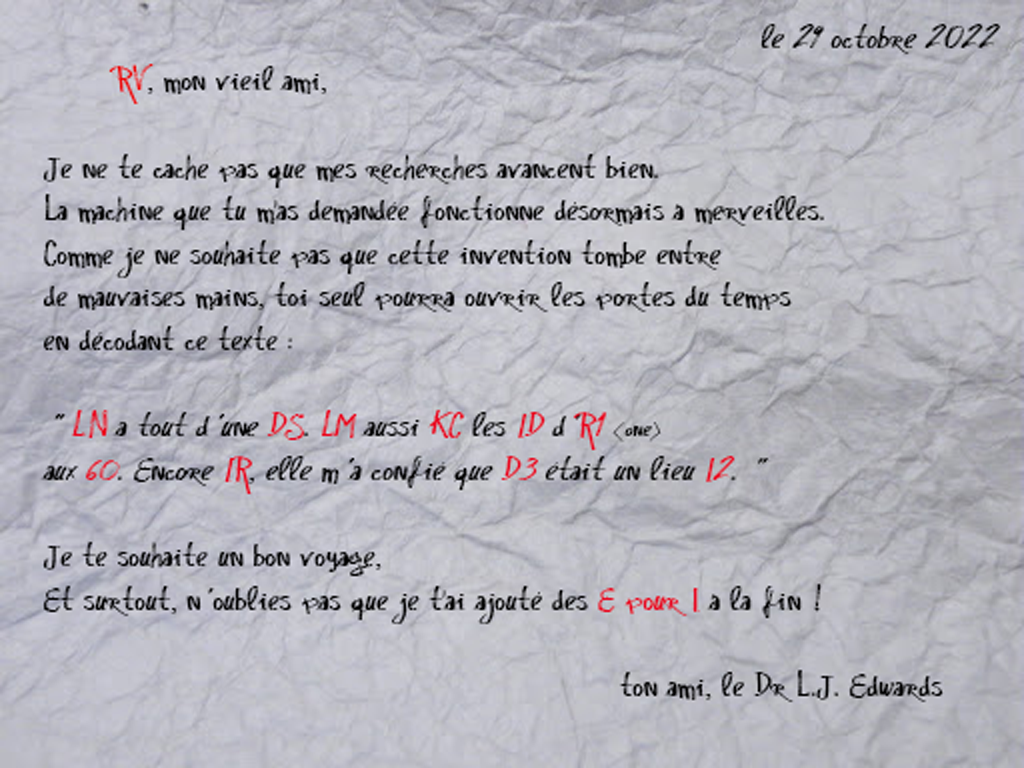 le 29 octobre 2022
RV, mon vieil ami,
Je ne te cache pas que mes recherches avancent bien.
La machine que tu m'as demandée fonctionne désormais a merveilles.
Comme je ne souhaite pas que cette invention tombe entre
de mauvaises mains, toi seul pourra ouvrir les portes du temps
en décodant ce texte :
" LN a tout d'une DS. LM aussi KC les 1D d'R1 <one>
aux 60. Encore 1R, elle m'a confié que D3 était un lieu 12. "
Je te souhaite un bon voyage,
Et surtout, n'oublies pas que je t'ai ajouté des E pour 1 a la fin !
ton ami, le Dr L.J. Edwards